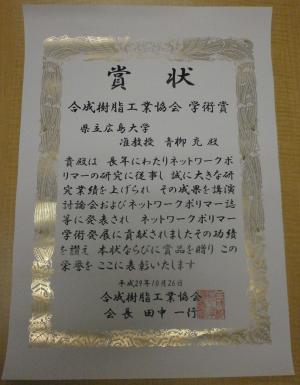 賞状
合成樹脂工業協会 学術賞
県立広島大学
准教授 青柳 充 殿
貴殿は 長年にわたりネットワークポ
リマーの研究に従事し 誠に大きな研
究業績を上げられ その成果を講演
討論会およびネットワークポリマー誌
等に発表され ネットワークポリマー
学術発展に貢献されましたその功績
を讃え 本状ならびに賞品を贈り この
栄誉を ここに表彰いたします
平成29年10月26日
合成樹脂工業協会
会長 田中 一行